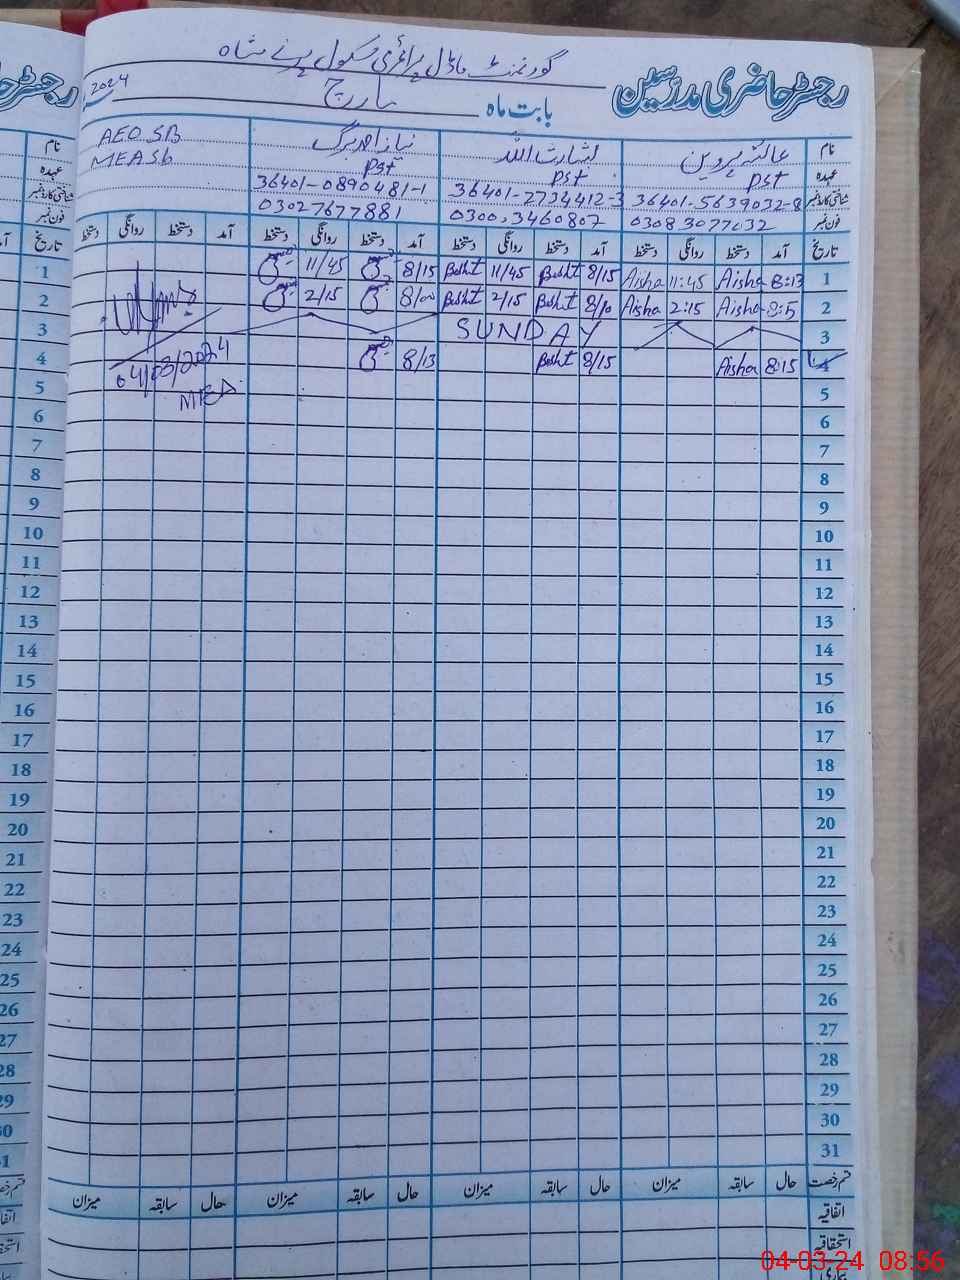 گورنمنٹ ماڈل پرائمری سکول
رجسٹر حاضری مدرسین
بابت ماہ مارچ 2024
نام عائشہ پروین بشارت اللہ نیاز احمد AEO SB
عہدہ PST PST PST MEASb
شناختی کارڈ نمبر 36401-5639032-8 36401-2734412-3 36401-0890481-1
فون نمبر 03083077032 0300,3460807 03027677881
تاریخ آمد دستخط روانگی دستخط آمد دستخط روانگی دستخط آمد دستخط روانگی دستخط آمد دستخط روانگی دستخط
1 8:13 Aisha 11:45 Aisha 8/15 Basht 11/45 Basht 8/15 11/45
2 8:5 Aisha 2:15 Aisha 8/10 Basht 2/15 Basht 8/00 2/15
3 SUNDAY
4 8:15 Aisha 8/15 Basht 8/13
04/03/2024
5
6
7
8
9
10
11
12
13
14
15
16
17
18
19
20
21
22
23
24
25
26
27
28
29
30
31
قسم رخصت حال سابقہ میزان حال سابقہ میزان حال سابقہ میزان حال سابقہ میزان
اتفاقیہ
استحقاقیہ
بیماری
04-03-24 08:56